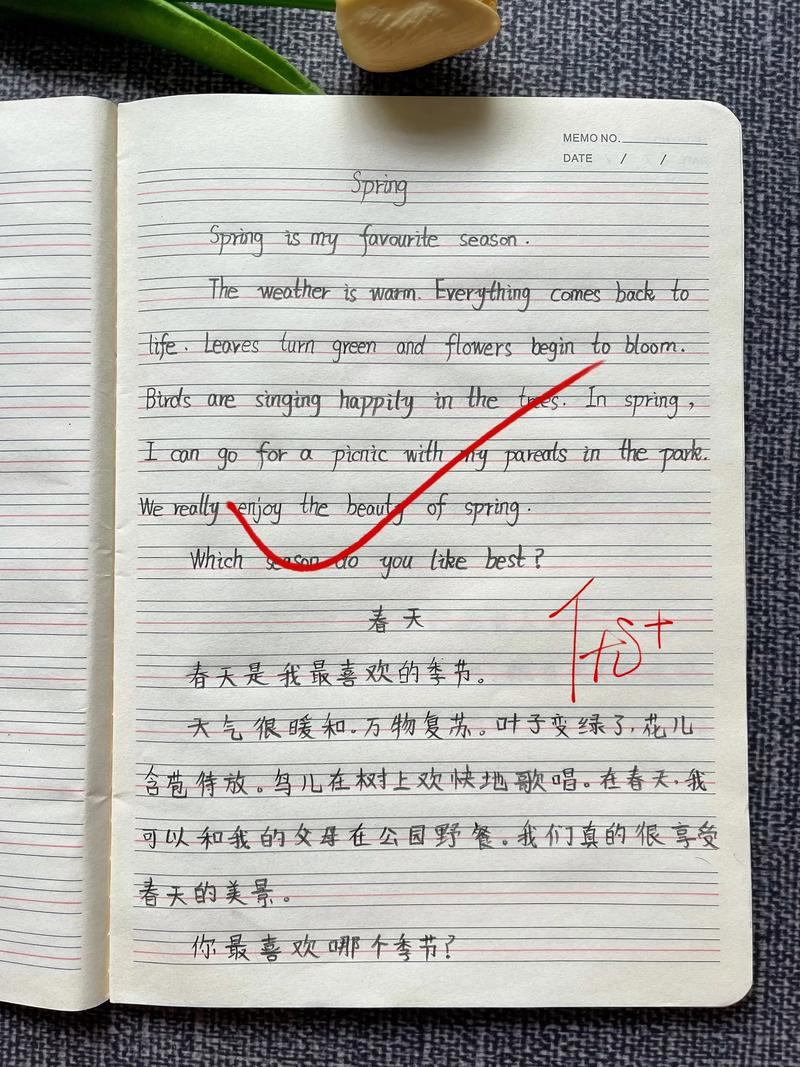 MEMO NO.
DATE / /
Spring
Spring is my favourite season.
The weather is warm. Everything comes back to
life. Leaves turn green and flowers begin to bloom.
Birds are singing happily in the trees. In spring,
I can go for a picnic with my pareats in the park.
We really enjoy the beauty of spring.
Which season do you like best?
优+
春天
春天是我最喜欢的季节。
天气很暖和.万物复苏。叶子变绿了,花儿
含苞待放。鸟儿在树上欢快地歌唱。在春天.我
可以和我的父母在公园野餐。我们真的很享受
春天的美景。
你最喜欢哪个季节?